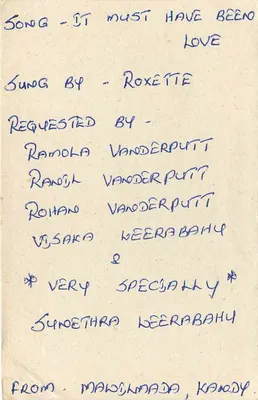 SONG - IT MUST HAVE BEEN
LOVE
SUNG BY - ROXETTE
REQUESTED BY -
RAMOLA VANDERPUTT
RANIL VANDERPUTT
ROHAN VANDERPUTT
VISAKA WEERABAHU
&
* VERY SPECIALLY *
SUNETHRA WEERABAHU
FROM - MAWILMADA, KANDY.